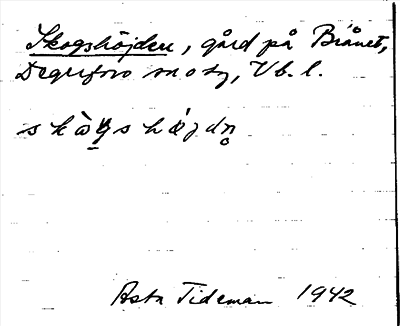 Skogshöjden, gård på Bånet,
Degerfors sn o tg, Vb. l.
skògshö́jdn̥
Asta Tideman 1942